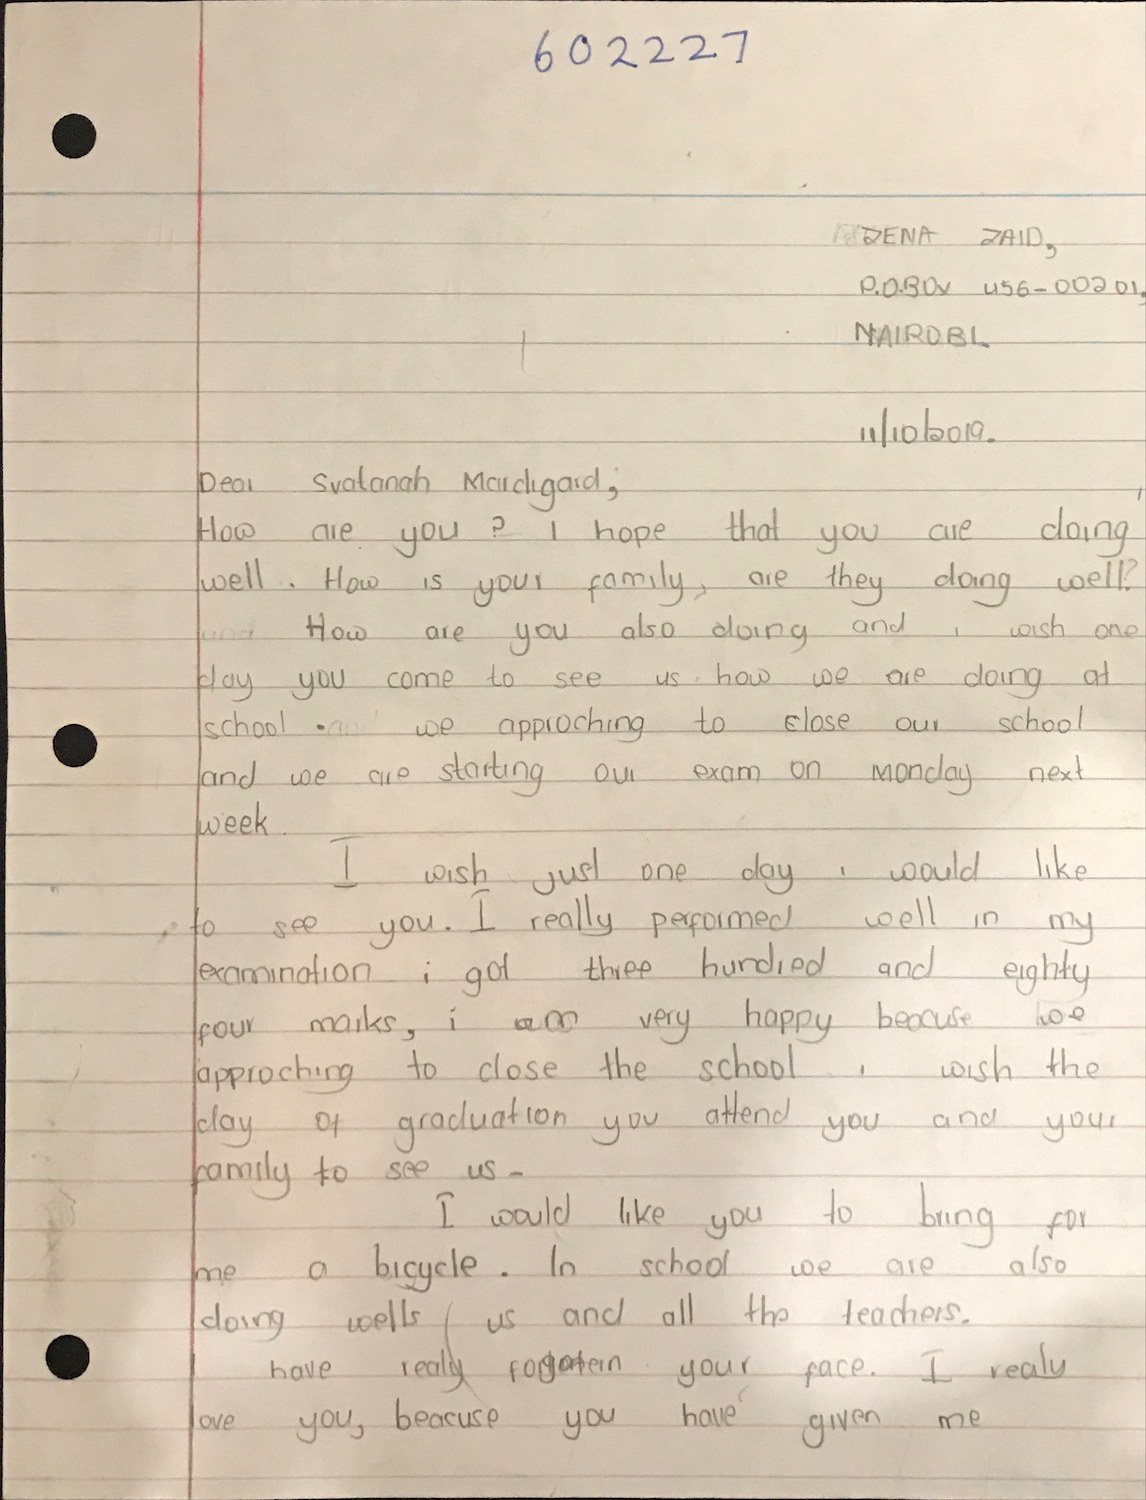 602227
ZENA ZAID,
P.O.BOX 456-00201,
NAIROBI
11/10/2019.
Dear Svatanah Mardigard,
How are you? I hope that you are doing
well. How is your family, are they doing well?
How are you also doing and i wish one
day you come to see us how we are doing at
school. we approching to close our school
and we are starting our exam on Monday next
week.
I wish just one day i would like
to see you. I really performed well in my
examination i got three hundred and eighty
four marks, i am very happy beacuse we
approching to close the school i wish the
day of graduation you attend you and your
family to see us.
I would like you to bring for
me a bicycle. In school we are also
doing wells us and all the teachers.
I have realy forgotein your face. I realy
love you, beacuse you have given me